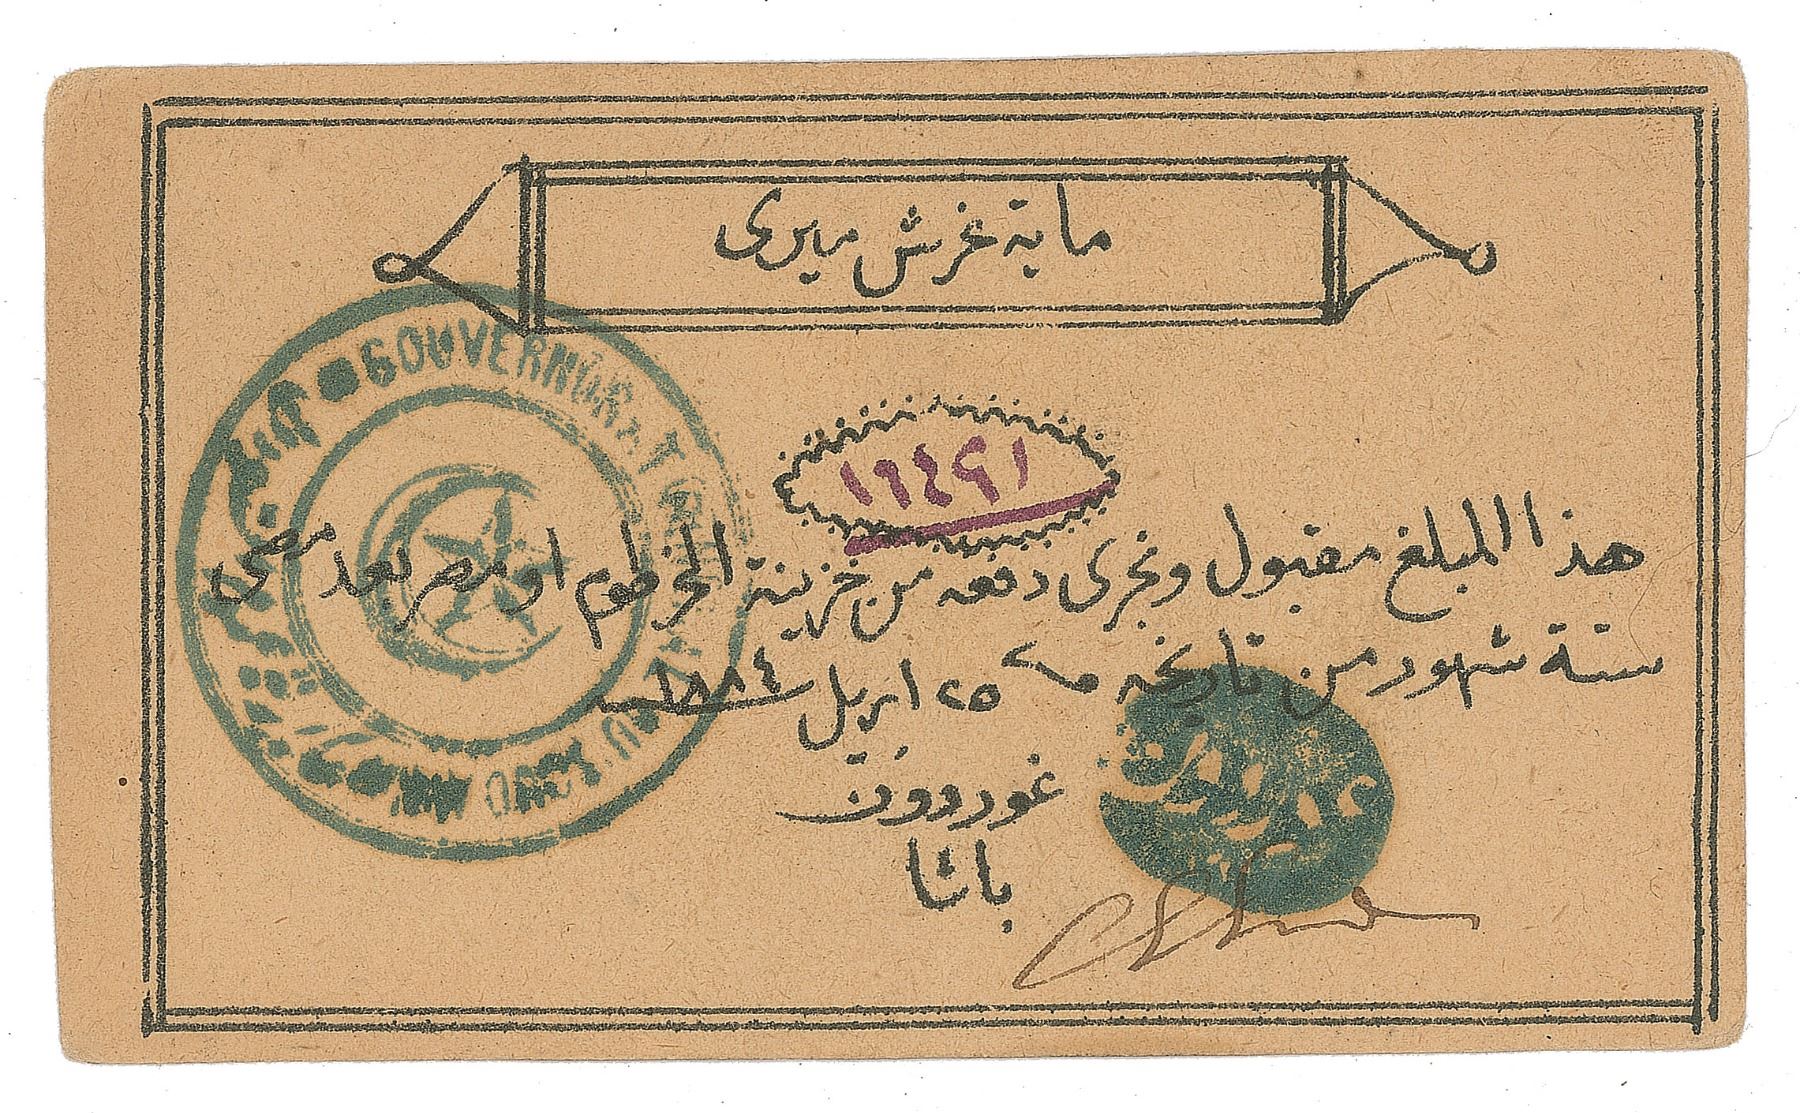 ماية غرش ميرى
GOUVERNORAT
١٦٤٩١
هذا المبلغ مقبول وتجرى دفعه من خزينة الخرطوم او مصر بعد مضى
ستة شهور من تاريخه ٢٥ ابريل ١٨٨٤
غوردون
باشا